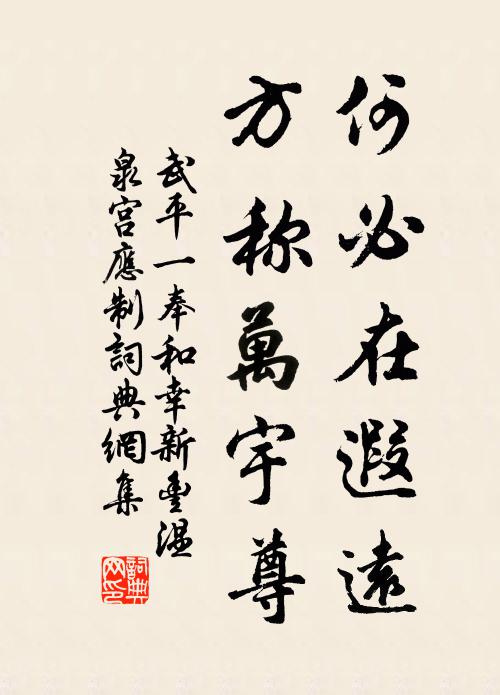 何必在遐遠
方称萬宇尊
武平一奉和幸新豊温
泉宫應制詞典網集
詞典
网印